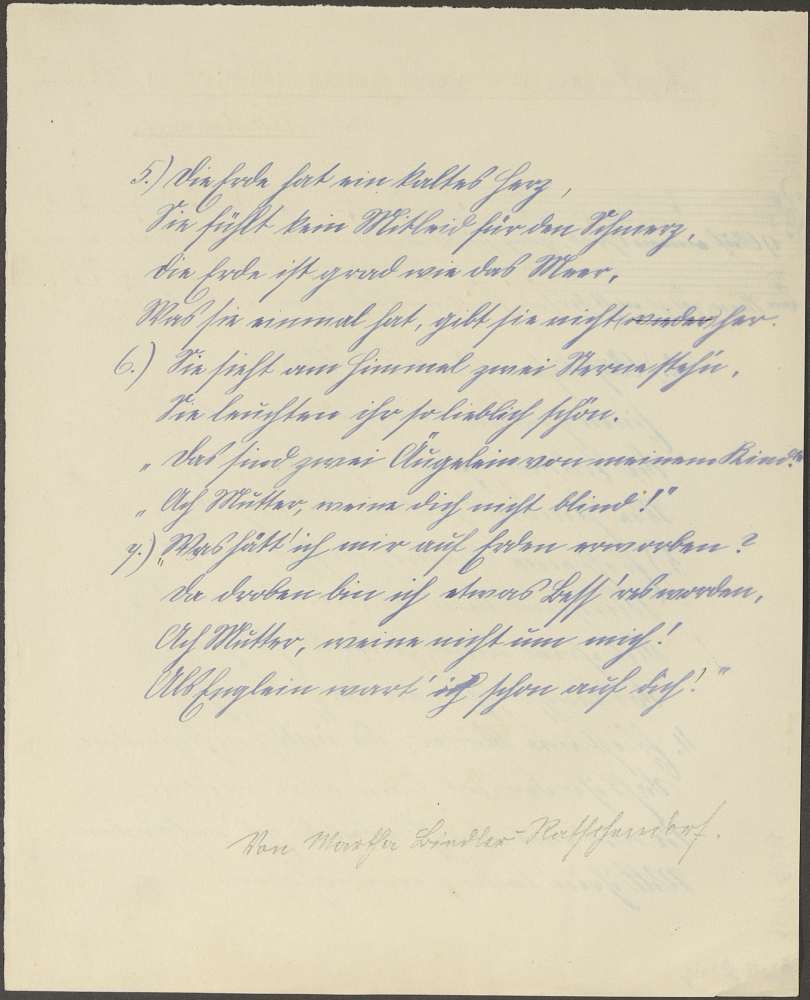 5.) Die Erde hat ein kaltes Herz,
Sie fühlt kein Mitleid für den Schmerz.
Die Erde ist grad wie das Meer,
Was sie einmal hat, gibt sie nicht wieder her.
6.) Sie sieht am Himmel zwei Sterne stehn,
Sie leuchten ihr so lieblich schön.
„Das sind zwei Äugelein von meinem Kind."
„Ach Mutter, weine dich nicht blind!"
7.) „Was hätt' ich mir auf Erden erworben?
Da droben bin ich etwas Bess'res worden,
Ach Mutter, weine nicht um mich!
Als Englein wart' ich schon auf dich!"
Von Martha Bindler Ratschendorf.